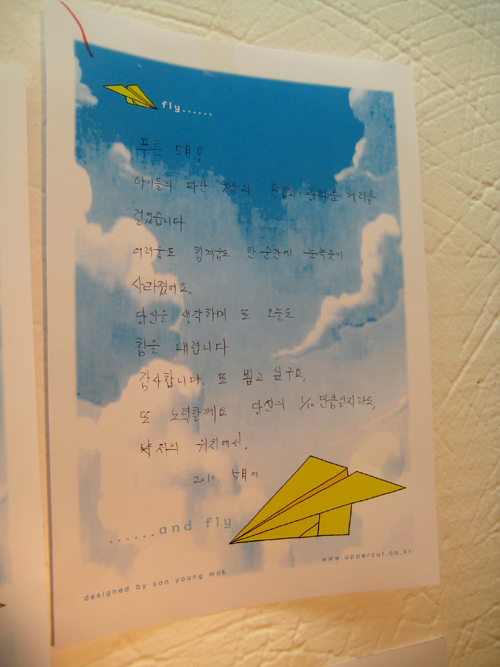 fly......
푸른 5月!
아이들의 파란 웃음과 거리를
걸었습니다
어려움도 힘겨움도 한 순간에 눈녹듯이
사라졌어요.
당신을 생각하며 또 오늘도
힘을 내렵니다
감사합니다. 또 뵙고 싶구요,
또 노력할께요 당신의 1/10 만큼일지라도,
각자의 위치에서.
2010. 5月에
......and fly
www.uppercut.co.kr
designed by son young mok